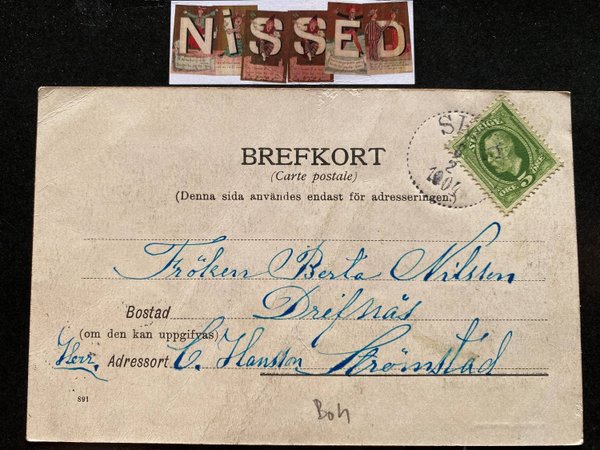 NiSSED
BREFKORT
(Carte postale)
(Denna sida användes endast för adresseringen.)
SVERIGE
5 ÖRE
1901
Fröken Berta Nilsson
Bostad Drifnäs
(om den kan uppgifvas)
Herr. Adressort C. Hansson Strömstad
S91
Boh